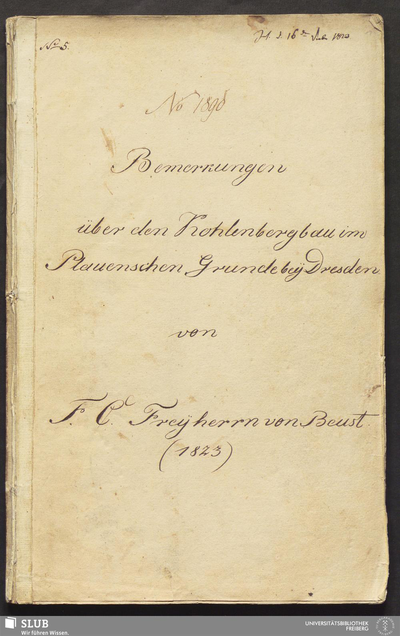 No 5.
No 1898
Bemerkungen
über den Kohlenbergbau im
Plauenschen Grunde beÿ Dresden
von
F. C. Freÿherrn von Beust
(1823)
SLUB
Wir führen Wissen.
UNIVERSITÄTSBIBLIOTHEK
FREIBERG